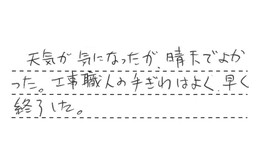 天気が気になったが、晴天でよか
った。工事職人の手ぎわはよく、早く
終了した。